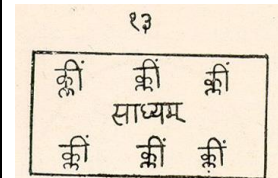 १३
क्लीं क्लीं क्लीं
साध्यम
क्लीं क्लीं क्लीं